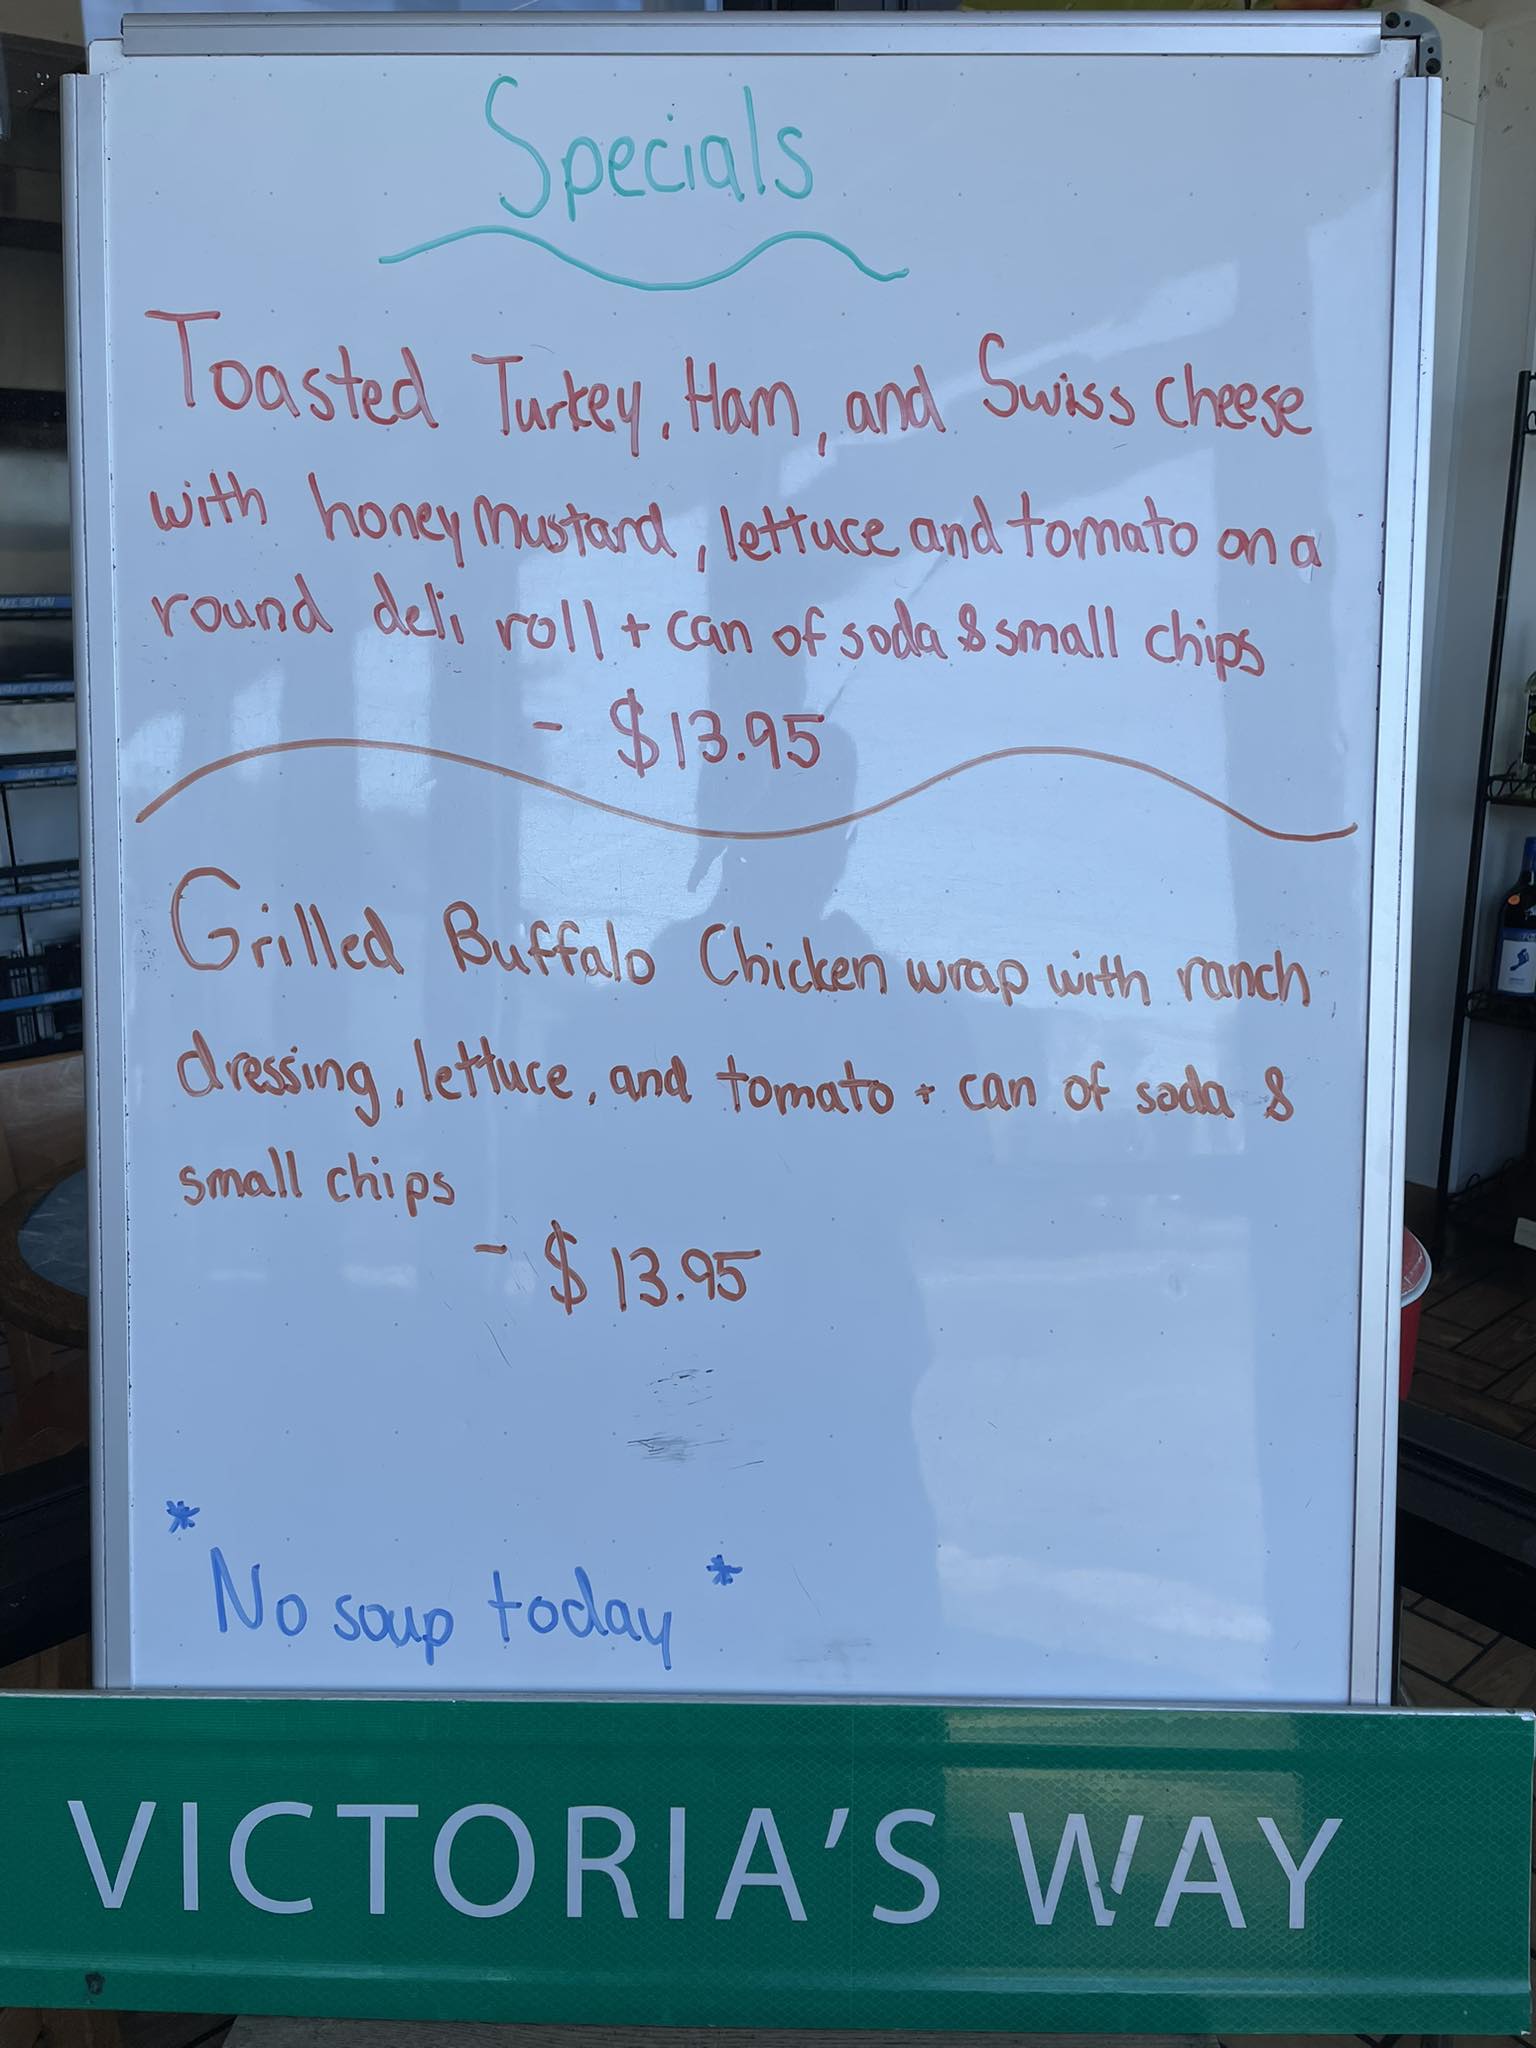 Specials
Toasted Turkey, Ham, and Swiss cheese
with honey mustard, lettuce and tomato on a
round deli roll + can of soda & small chips
- $13.95
Grilled Buffalo Chicken wrap with ranch
dressing, lettuce, and tomato + can of soda &
small chips
- $13.95
* No soup today *
VICTORIA'S WAY